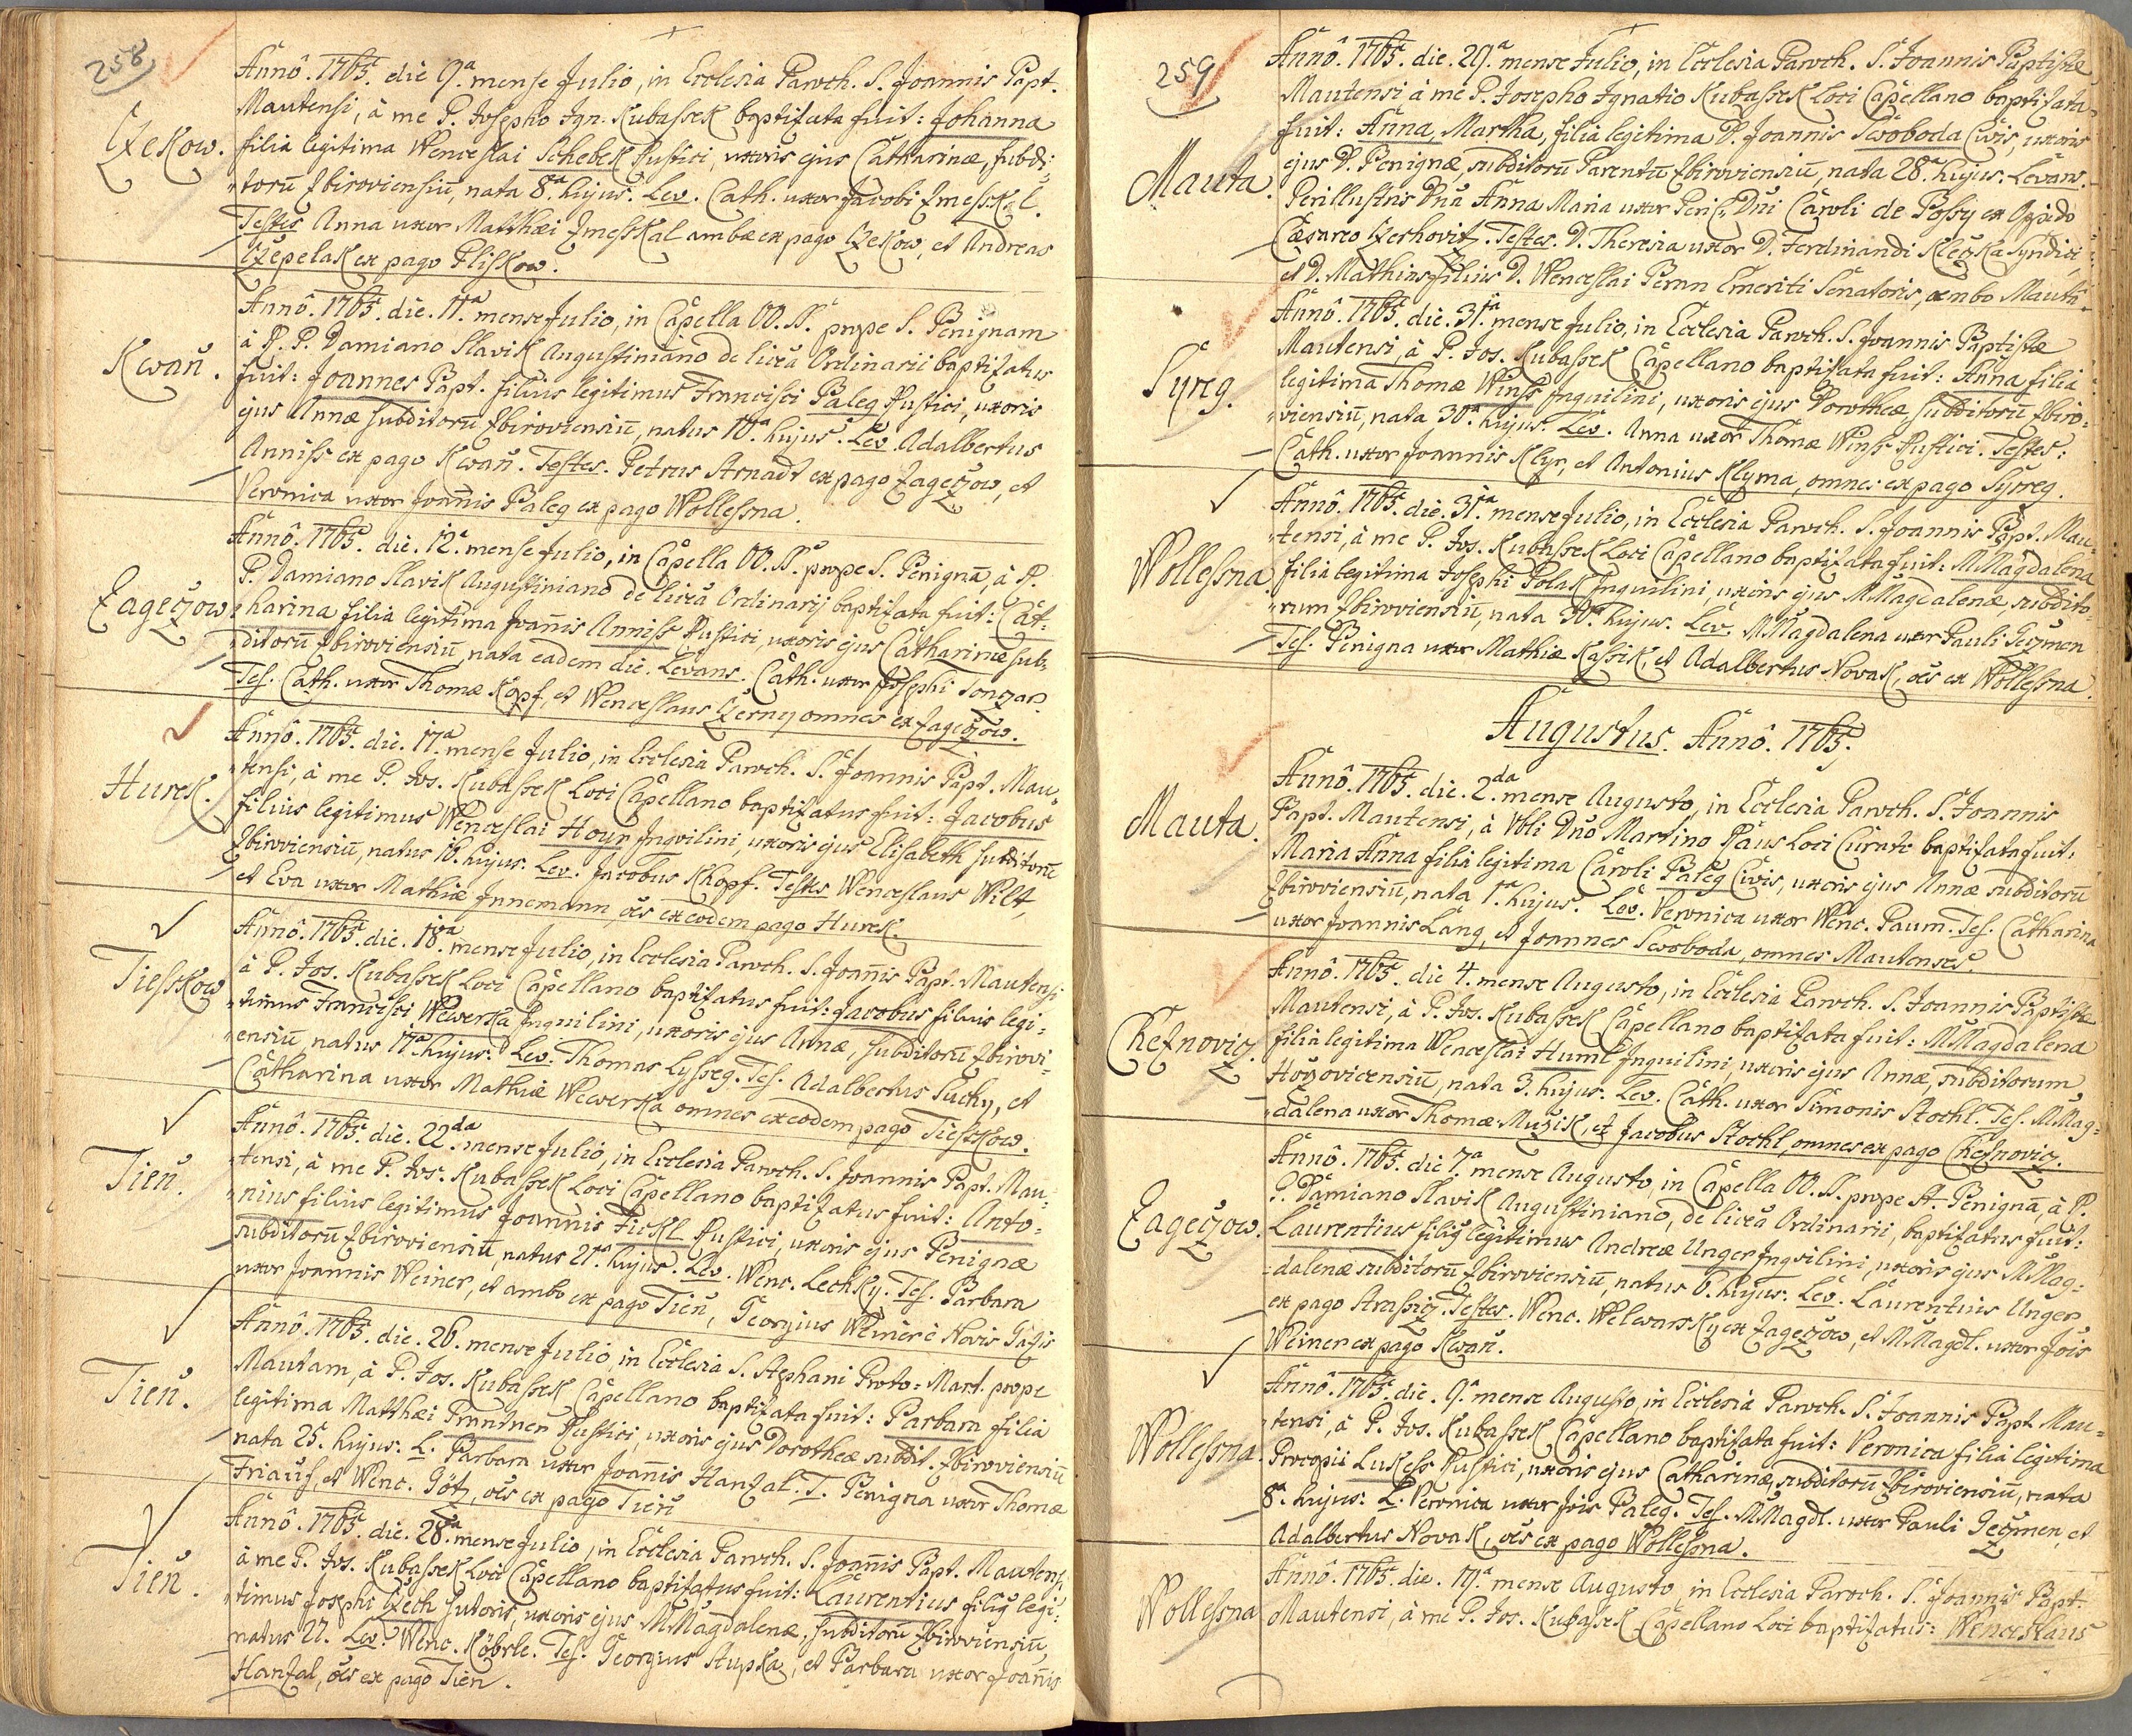 258
Czekow.
Annô. 1765. die 9.a mense Julio, in Ecclesia Paroch. S. Joannis Bapt.
Mautensi, à me P. Josepho Ign. Kubassek baptizata fuit: Johanna
filia legitima Wenceslai Schebek Rustici, uxoris ejus Catharinæ, subdi:
torū Zbiroviensiū, nata 8.a hujus. Lev. Cath. uxor Jacobi Zmesskal.
Testes Anna uxor Matthæi Zmesskal ambæ ex pago Czekow, et Andreas
Czepelak ex pago Pliskow.
Kwaň.
Annô. 1765. die. 11.a mense Julio, in Capella OO. SS. prope S. Benignam
à R. P. Damiano Slavik Augustiniano de licẽa Ordinarii baptizatus
fuit: Joannes Bapt. filius legitimus Francisci Paleg Rustici, uxoris
ejus Annæ subditorū Zbiroviensiū, natus 10.a hujus. Lev. Adalbertus
Anniss ex pago Kwaň. Testes. Petrus Arnadt ex pago Zageczow, et
Veronica uxor Joañis Paleg ex pago Wollessna.
Zageczow.
Annô. 1765. die. 12.a mense Julio, in Capella OO. SS. prope S. Benignā, à R.
P. Damiano Slavik Augustiniano de licẽa Ordinarij baptizata fuit: Cat:
harina filia legitima Joañis Anniss Rustici, uxoris ejus Catharinæ sub:
ditorū Zbiroviensiū, nata eadem die. Levans. Cath. uxor Josephi Tonczar.
Tes. Cath. uxor Thomæ Kopf, et Wenceslaus Czerny omnes ex Zageczow.
Hurek.
Annô. 1765. die. 17.a mense Julio, in Ecclesia Paroch. S. Joannis Bapt. Mau:
tensi, à me P. Jos. Kubassek Loci Capellano baptizatus fuit: Jacobus
filius legitimus Wenceslai Houy Inquilini, uxoris ejus Elisabeth subditorū
Zbiroviensiū, natus 16. hujus. Lev. Jacobus Khopf. Testes Wenceslaus Wilt,
et Eva uxor Mathiæ Innemann, oẽs ex eodem pago Hurek.
Tiesskow
Annô. 1765. die. 18.a mense Julio, in Ecclesia Paroch. S. Joañis Bapt. Mautensi
à P. Jos. Kubassek Loci Capellano baptizatus fuit: Jacobus filius legi:
timus Francisci Wewerka Inquilini, uxoris ejus Annæ, subditorū Zbirovi:
ensiū, natus 17.a hujus. Lev. Thomas Lysseg. Tes. Adalbertus Suchy, et
Catharina uxor Mathiæ Wewerka omnes ex eodem pago Tiesskow.
Tieň.
Annô. 1765. die. 22.da mense Julio, in Ecclesia Paroch. S. Joannis Bapt. Mau:
tensi, à me P. Jos. Kubassek Loci Capellano baptizatus fuit: Anto:
nius filius legitimus Joannis Fickl Rustici, uxoris ejus Benignæ
subditorū Zbiroviensiū, natus 21.a hujus. Lev. Wenc. Lechky. Tes. Barbara
uxor Joannis Weiner, et ambo ex pago Tieň, Georgius Weiner è Novis
Tieň.
Annô. 1765. die. 26. mense Julio, in Ecclesia S. Stephani Proto: Mart. prope
Mautam, à P. Jos. Kubassek Capellano baptizata fuit: Barbara filia
legitima Matthæi Prantner Rustici, uxoris ejus Dorotheæ subdit. Zbiroviensiū
nata 25. hujus. L. Barbara uxor Joañis Hanzal. T. Benigna uxor Thomæ
Friauf, et Wenc. Göt, oẽs ex pago Tieň
Tieň.
Annô. 1765. die. 28.a mense Julio, in Ecclesia Paroch. S. Joañis Bapt. Mautensi,
à me P. Jos. Kubassek Loci Capellano baptizatus fuit: Laurentius filiꝰ legi:
timus Josephi Czech Sutoris, uxoris ejus M. Magdalenæ, subditorū Zbiroviensiū,
natus 27. Lev. Wenc. Köbrle. Tes. Georgius Stupka, et Barbara uxor Joañis
Hanzal, oẽs ex pago Tieň.
259
Mauta.
Annô. 1765. die. 29.a mense Julio, in Ecclesia Paroch. S. Joannis Baptistæ
Mautensi à me P. Josepho Ignatio Kubassek Loci Capellano baptizata
fuit: Anna Martha, filia legitima D. Joannis Swoboda Civis, uxoris
ejus D. Benignæ, subditorū Parentū Zbiroviensiū, nata 28.a hujus. Levans.
Perillustris Dña Anna Maria uxor Perill. Dñi Caroli de Bossy ex Oppido
Cæsareo Czerhovitz. Testes. D. Theresia uxor D. Ferdinandi Kleczka Syndici,
et D. Mathias filius D. Wenceslai Beran Emeriti Senatoris, ambo Mauti:
Syreg.
Annô. 1765. die. 31.a mense Julio, in Ecclesia Paroch. S. Joannis Baptistæ
Mautensi, à P. Jos. Kubassek Capellano baptizata fuit: Anna filia
legitima Thomæ Winss Inquilini, uxoris ejus Dorotheæ subditorū Zbiro:
viensiū, nata 30.a hujus. Lev. Anna uxor Thomæ Winss Rustici. Testes:
Cath. uxor Joannis Klyr, et Antonius Klyma, omnes ex pago Syreg.
Wollessna.
Annô. 1765. die. 31.a mense Julio, in Ecclesia Paroch. S. Joannis Bapt. Mau:
tensi, à me P. Jos. Kubassek Loci Capellano baptizata fuit: M. Magdalena
filia legitima Josephi Polak Inquilini, uxoris ejus M. Magdalenæ, subdito:
rum Zbiroviensiū, nata 30.a hujus. Lev. M. Magdalena uxor Pauli Geczmen
Tes. Benigna uxor Mathiæ Kassik, et Adalbertus Novak, oẽs ex Wollessna.
Augustus. Annô. 1765.
Mauta.
Annô. 1765. die. 2.da mense Augusto, in Ecclesia Paroch. S. Joannis
Bapt. Mautensi, à Vbli Dño Martino Paus Loci Curato baptizata fuit:
Maria Anna filia legitima Caroli Paleg Civis, uxoris ejus Annæ subditorū
Zbiroviensiū, nata 1.a hujus. Lev. Veronica uxor Wenc. Paum. Tes. Catharina
uxor Joannis Lang, et Joannes Swoboda, omnes Mautenses.
Cheznovicz.
Annô. 1765. die 4. mense Augusto, in Ecclesia Paroch. S. Joannis Baptistæ
Mautensi, à P. Jos. Kubassek Capellano baptizata fuit: M. Magdalena
filia legitima Wenceslai Huml Inquilini, uxoris ejus Annæ, subditorum
Hořovicensiū, nata 3. hujus. Lev. Cath. uxor Simonis Stochl. Tes. M. Mag:
dalena uxor Thomæ Muzik, et Jacobus Stochl, omnes ex pago Cheznovicz.
Zageczow.
Annô. 1765. die 7.a mense Augusto, in Capella OO. SS. prope St. Benignā, à P.
P. Damiano Slavik Augustiniano, de licẽa Ordinarii, baptizatus fuit:
Laurentius filiꝰ legitimus Andreæ Unger Inquilini, uxoris ejus M. Mag:
dalenæ subditorū Zbiroviensiū, natus 6. hujus. Lev. Laurentius Unger
ex pago Strassicz. Testes. Wenc. Welwarsky ex Zageczow, et M. Magdl. uxor Jois
Weiner ex pago Kwaň.
Wollessna.
Annô. 1765. die. 9.a mense Augusto, in Ecclesia Paroch. S. Joannis Bapt. Mau:
tensi, à P. Jos. Kubassek Capellano baptizata fuit: Veronica filia legitima
Procopii Lukess Rustici, uxoris ejus Catharinæ, subditorū Zbiroviensiū, nata
8.a hujus. L. Veronica uxor Jois Paleg. Tes. M. Magdl. uxor Pauli Geczmen, et
Adalbertus Novak, oẽs ex pago Wollessna.
Wollessna
Annô. 1765. die. 19.a mense Augusto, in Ecclesia Paroch. S. Joannis Bapt.
Mautensi, à me P. Jos. Kubassek Capellano Loci baptizatus: Wenceslaus